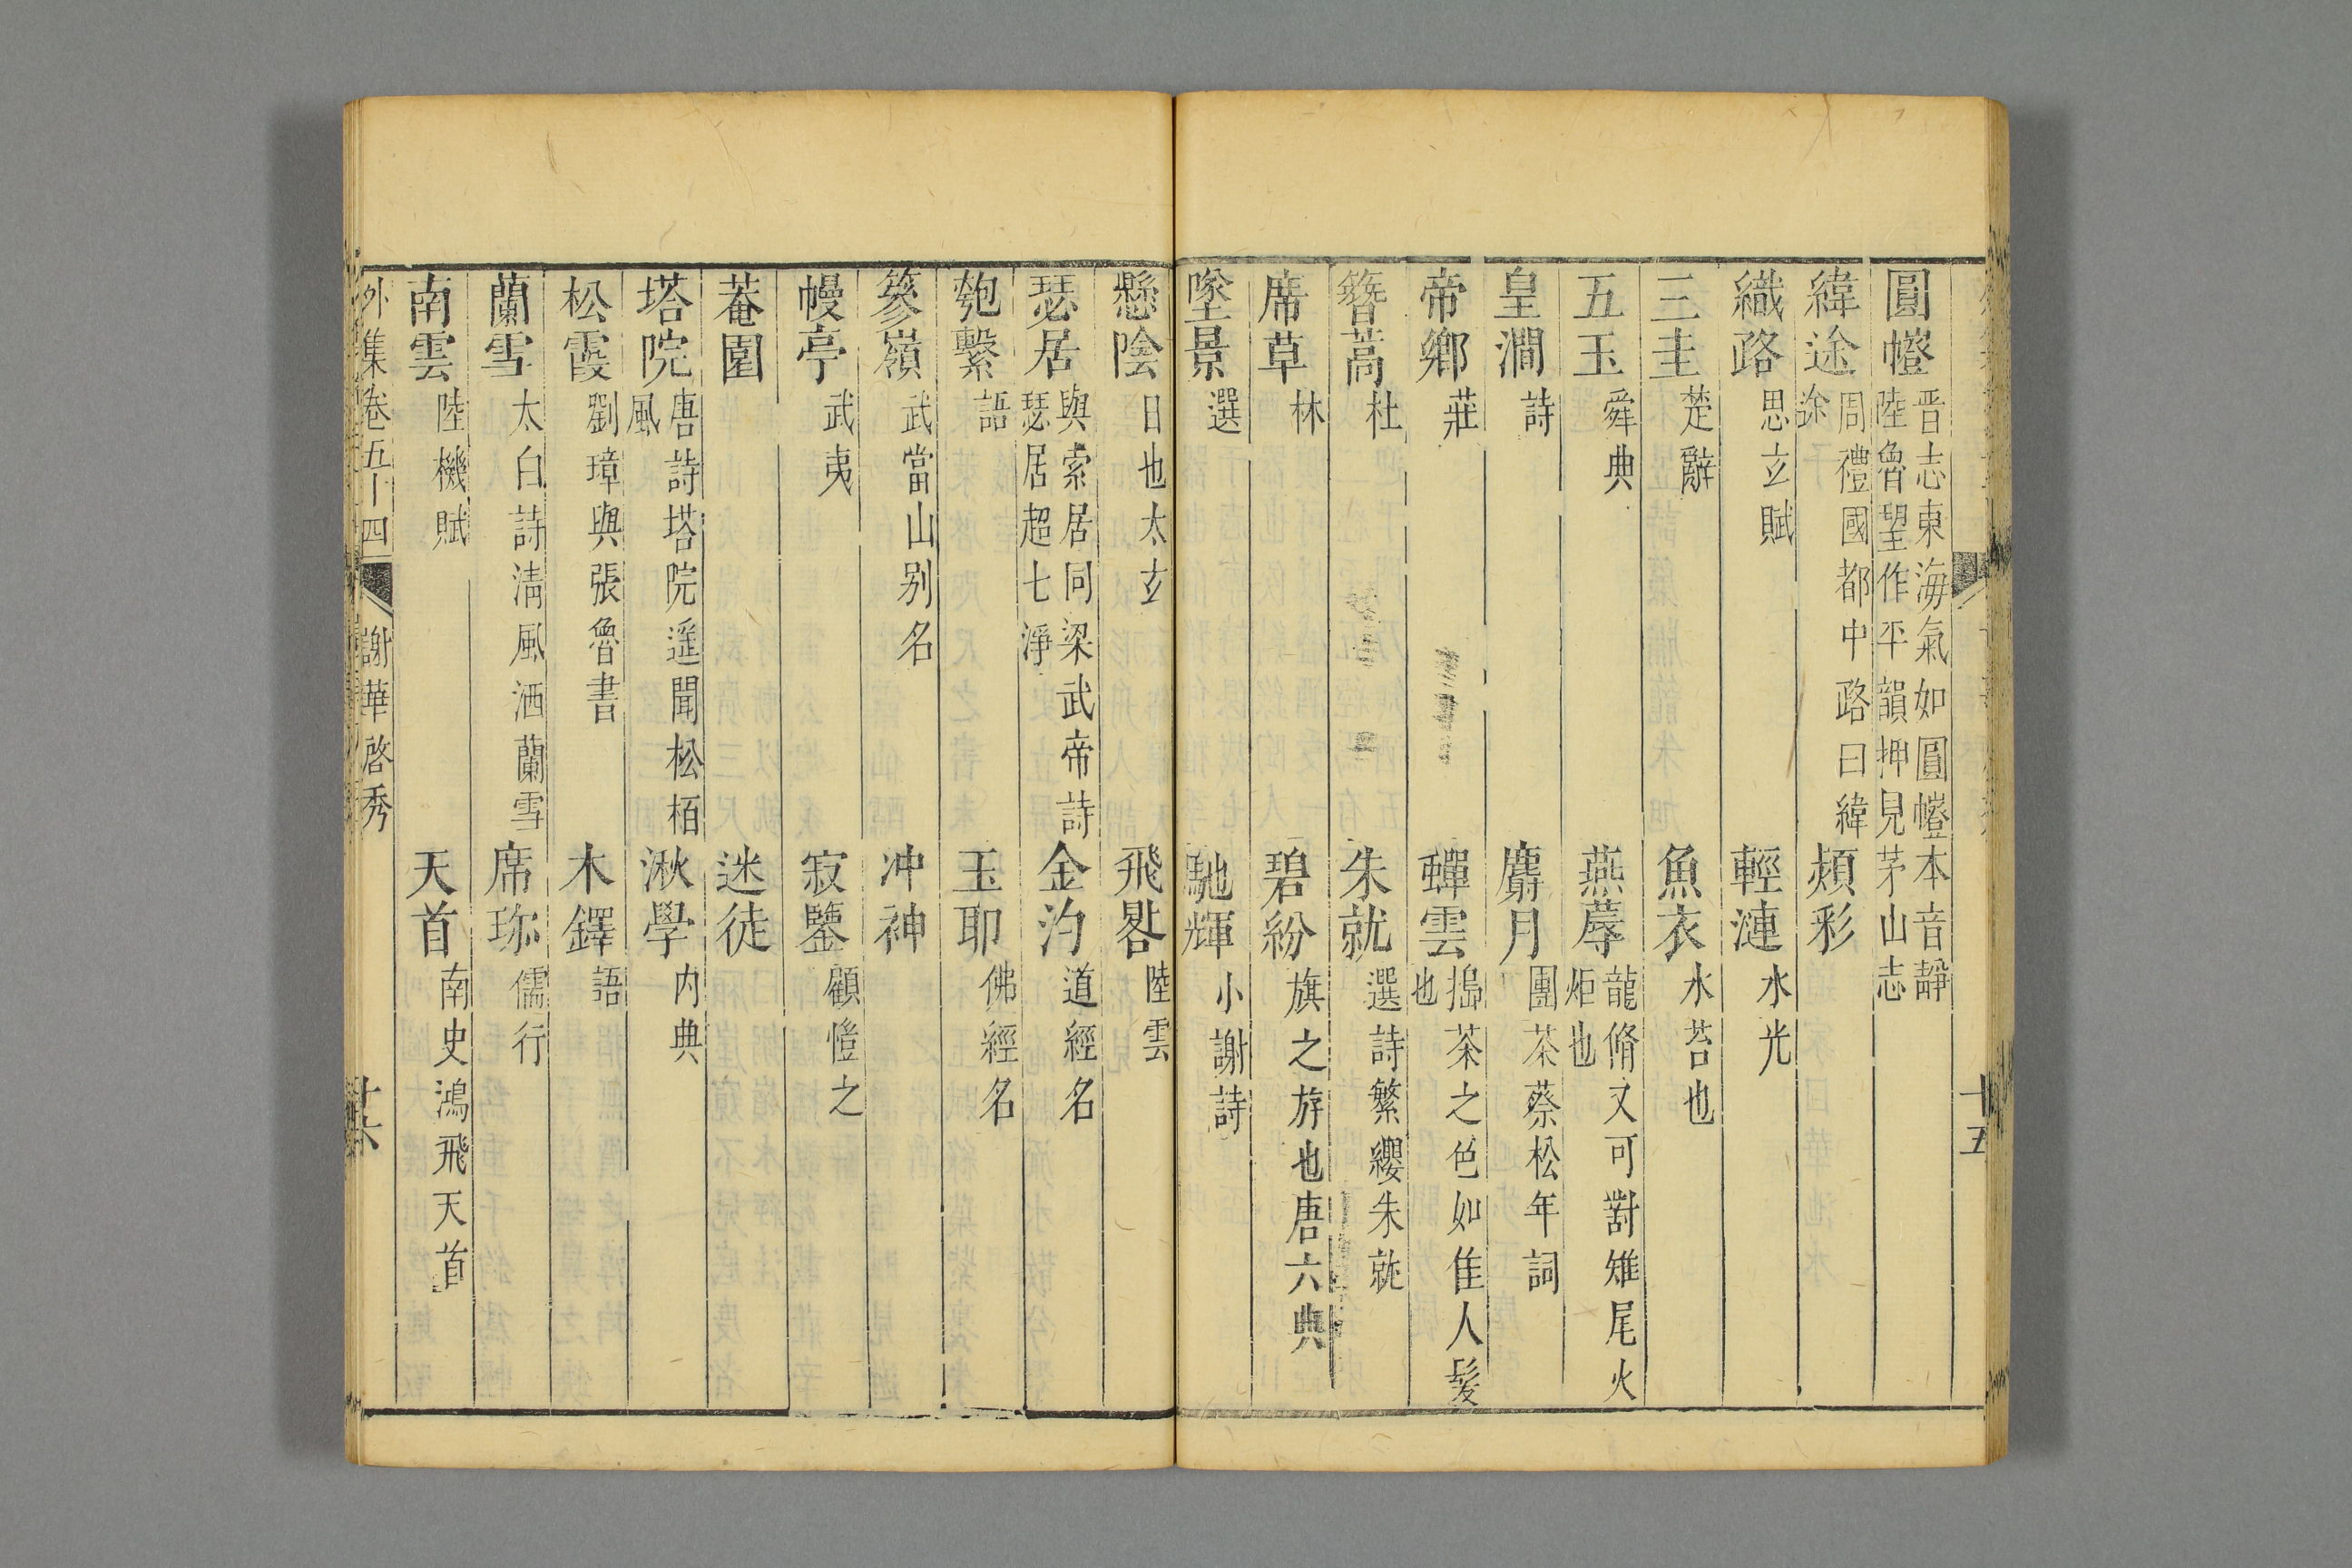 圓幢晋志東海氣如圓幢本音靜陸魯望作平韻押見茅山志
緯途周禮國都中路曰緯途 頮彩
織路思玄賦 輕漣水光
三圭楚辭 魚衣水苔也
五玉舜典 燕蓐龍脩又可對雉尾火炬也
皇澗詩 麝月團茶蔡松年詞
帝鄉莊 蟬雲搗茶之色如隹人髮也
簪蒿杜 朱就選詩繁纓朱就
席草林 碧紛旗之斿也唐六典
墜景選 馳輝小謝詩
懸陰日也太玄 飛晷陸雲
瑟居與索居同梁武帝詩瑟居超七淨 金汋道經名
匏繫語 玉耶佛經名
篸嶺武當山別名 冲神
幔亭武夷 寂鑒顧愷之
菴園 迷徒
塔院唐詩塔院遥聞松栢風 湫學内典
松霞劉璋與張魯書 木鐸語
蘭雪太白詩清風洒蘭雪 席珎儒行
南雲陸機賦 天首南史鴻飛天首
外集卷五十四 謝華啓秀
十五